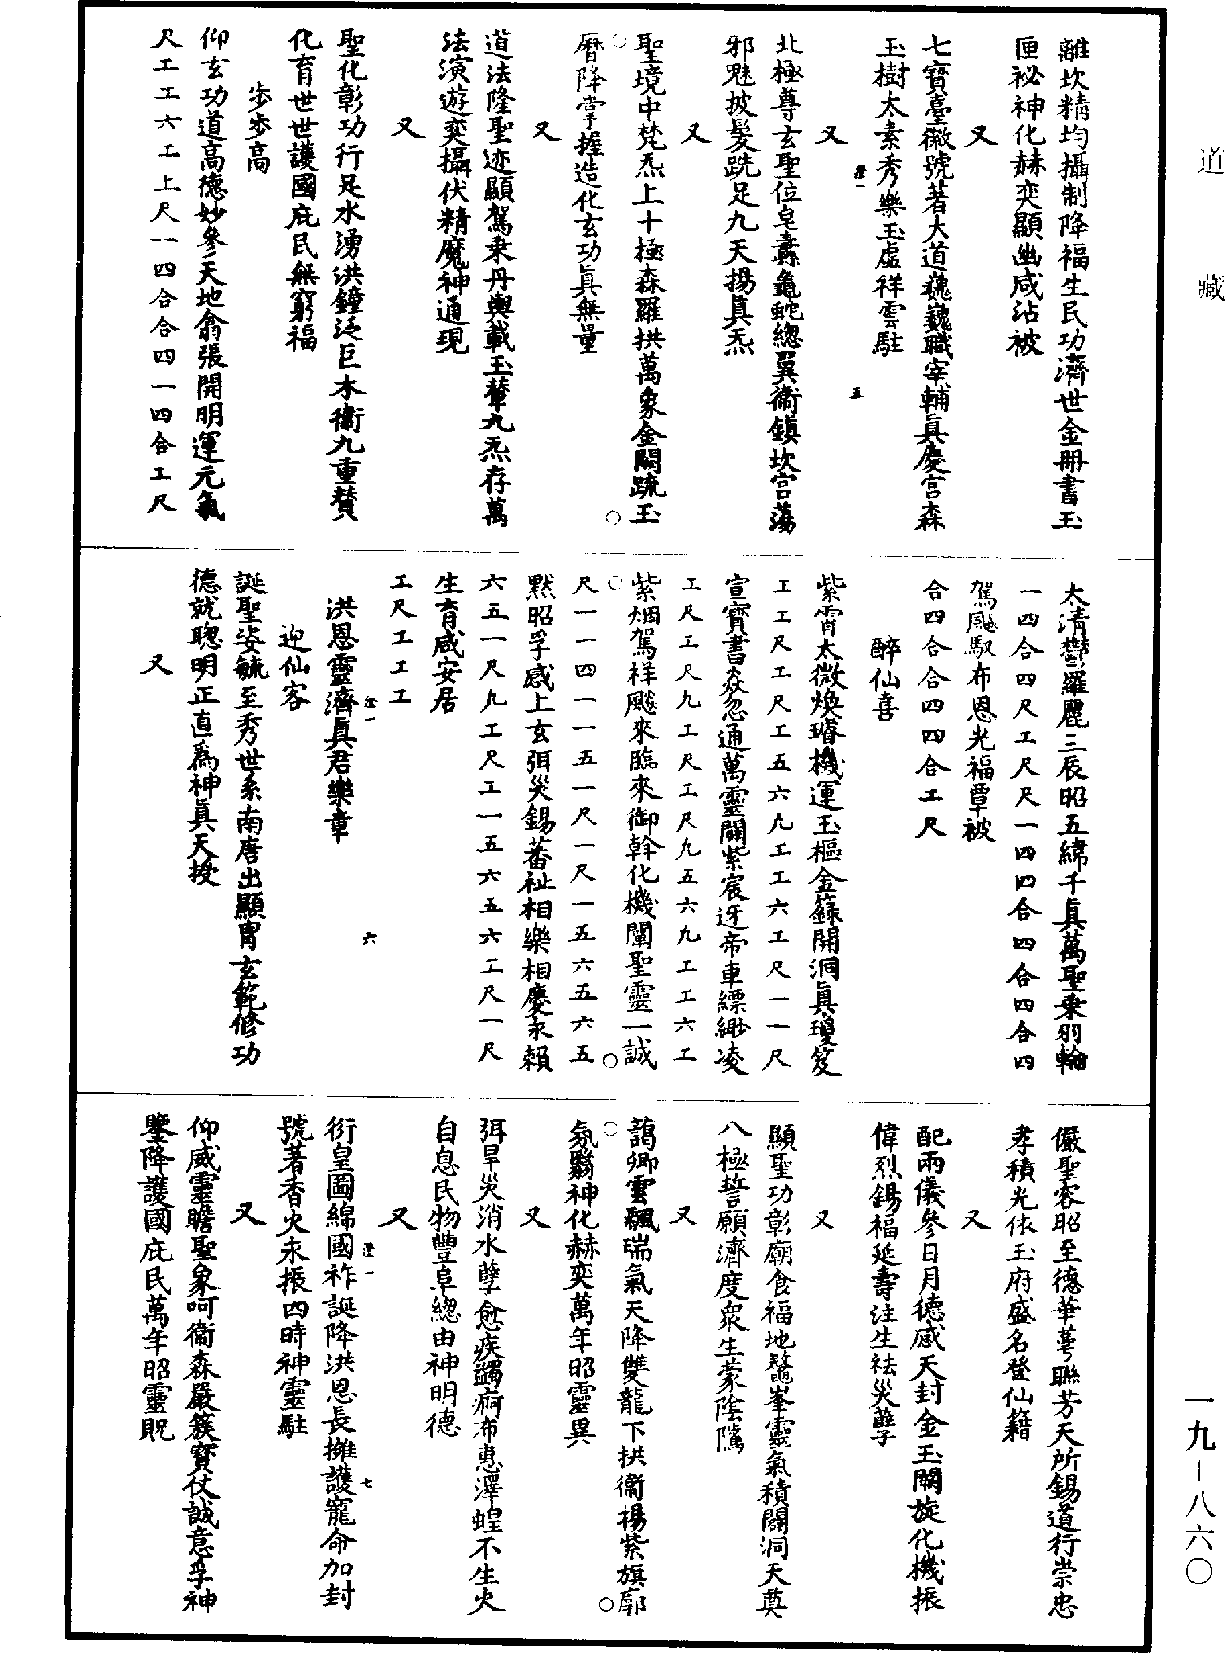 道藏
離坎精均攝制降福生民功濟世金冊書玉
匣祕神化赫奕顯幽咸沾被
又
七寶臺徽號著大道巍巍職宰輔真慶宮森
玉樹太素秀樂玉虛祥雲駐
澄一 五
又
北極尊玄聖位皂纛龜蛇總翼衛鎮坎宮蕩
邪魅披髮跣足九天揚真炁
又
聖境中梵炁上十極森羅拱萬象金闕疏玉
曆降掌握造化玄功真無量
又
道法隆聖迹顯駕乘丹輿載玉輦九炁存萬
法演遊奕攝伏精魔神通現
又
聖化彰功行足水湧洪鐘泛巨木衛九重贊
化育世世護國庇民無窮福
步步高
仰玄功道高德妙參天地翕張開明運元氣
尺工工六工上尺一四合合四一四合工尺
太清鬱羅麗三辰昭五緯千真萬聖乘羽輪
一四合四尺工尺尺一四四合四合四合四
駕颷馭布恩光福覃被
合四合合四四合工尺
醉仙喜
紫霄太微煥璿機運玉樞金籙開洞真瓊笈
工工尺工尺工五六九工工六工尺一一尺
宣寶書森忽通萬靈闢紫宸迓帝車縹緲凌
工尺工尺九工尺工尺九五六九工工六工
紫烟駕祥颷來臨來御斡化機闡聖靈一誠
尺一一四一一五一尺一尺一五六五六五
默昭孚感上玄弭災錫蕃祉相樂相慶永賴
六五一尺九工尺工一五六五六工尺一尺
生育咸安居
工尺工工工
澄一 六
洪恩靈濟真君樂章
迎仙客
誕聖姿毓至秀世系南唐出顯冑玄範修功
德就聰明正直爲神真天授
又
儼聖容昭至德華萼聯芳天所錫道行崇忠
孝積光依玉府盛名登仙籍
又
配兩儀參日月德感天封金玉闕旋化機振
偉烈錫福延壽注生祛災孽
又
顯聖功彰廟食福地鼇峯靈氣積闢洞天奠
八極誓願濟度衆生蒙陰隲
又
靄卿雲飄瑞氣天降雙龍下拱衛揚紫旗廓
氛翳神化赫奕萬年昭靈異
又
弭旱災消水孽愈疾蠲痾布惠澤蝗不生火
自息民物豐阜總由神明德
又
澄一 七
衍皇圖綿國祚誕降洪恩長擁護寵命加封
號著香火永振四時神靈駐
又
仰威靈瞻聖象呵衛森嚴簇寶仗誠意孚神
鑒降護國庇民萬年昭靈貺
一九－八六〇